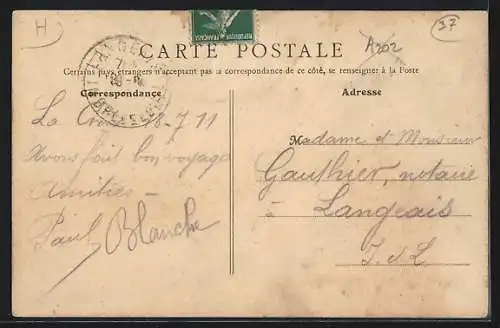 H
REPUBLIQUE FRANÇAISE
37
CARTE POSTALE
A202
Certains pays étrangers n'acceptant pas la correspondance de ce côté, se renseigner à la Poste
LANGEAIS
Correspondance
Adresse
La 18-7 11
Avons fait bon voyage
Amitiés -
Paul Blanche
Madame et Monsieur
Gauthier, notaire
à Langeais
I. et L.